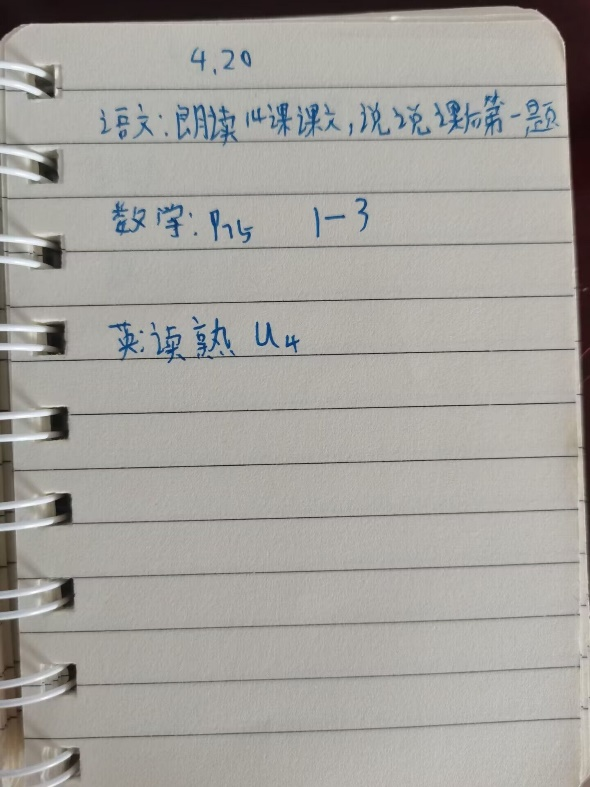 4.20
语文:朗读14课课文,说说课后第一题
数学:P75 1-3
英:读熟 U4